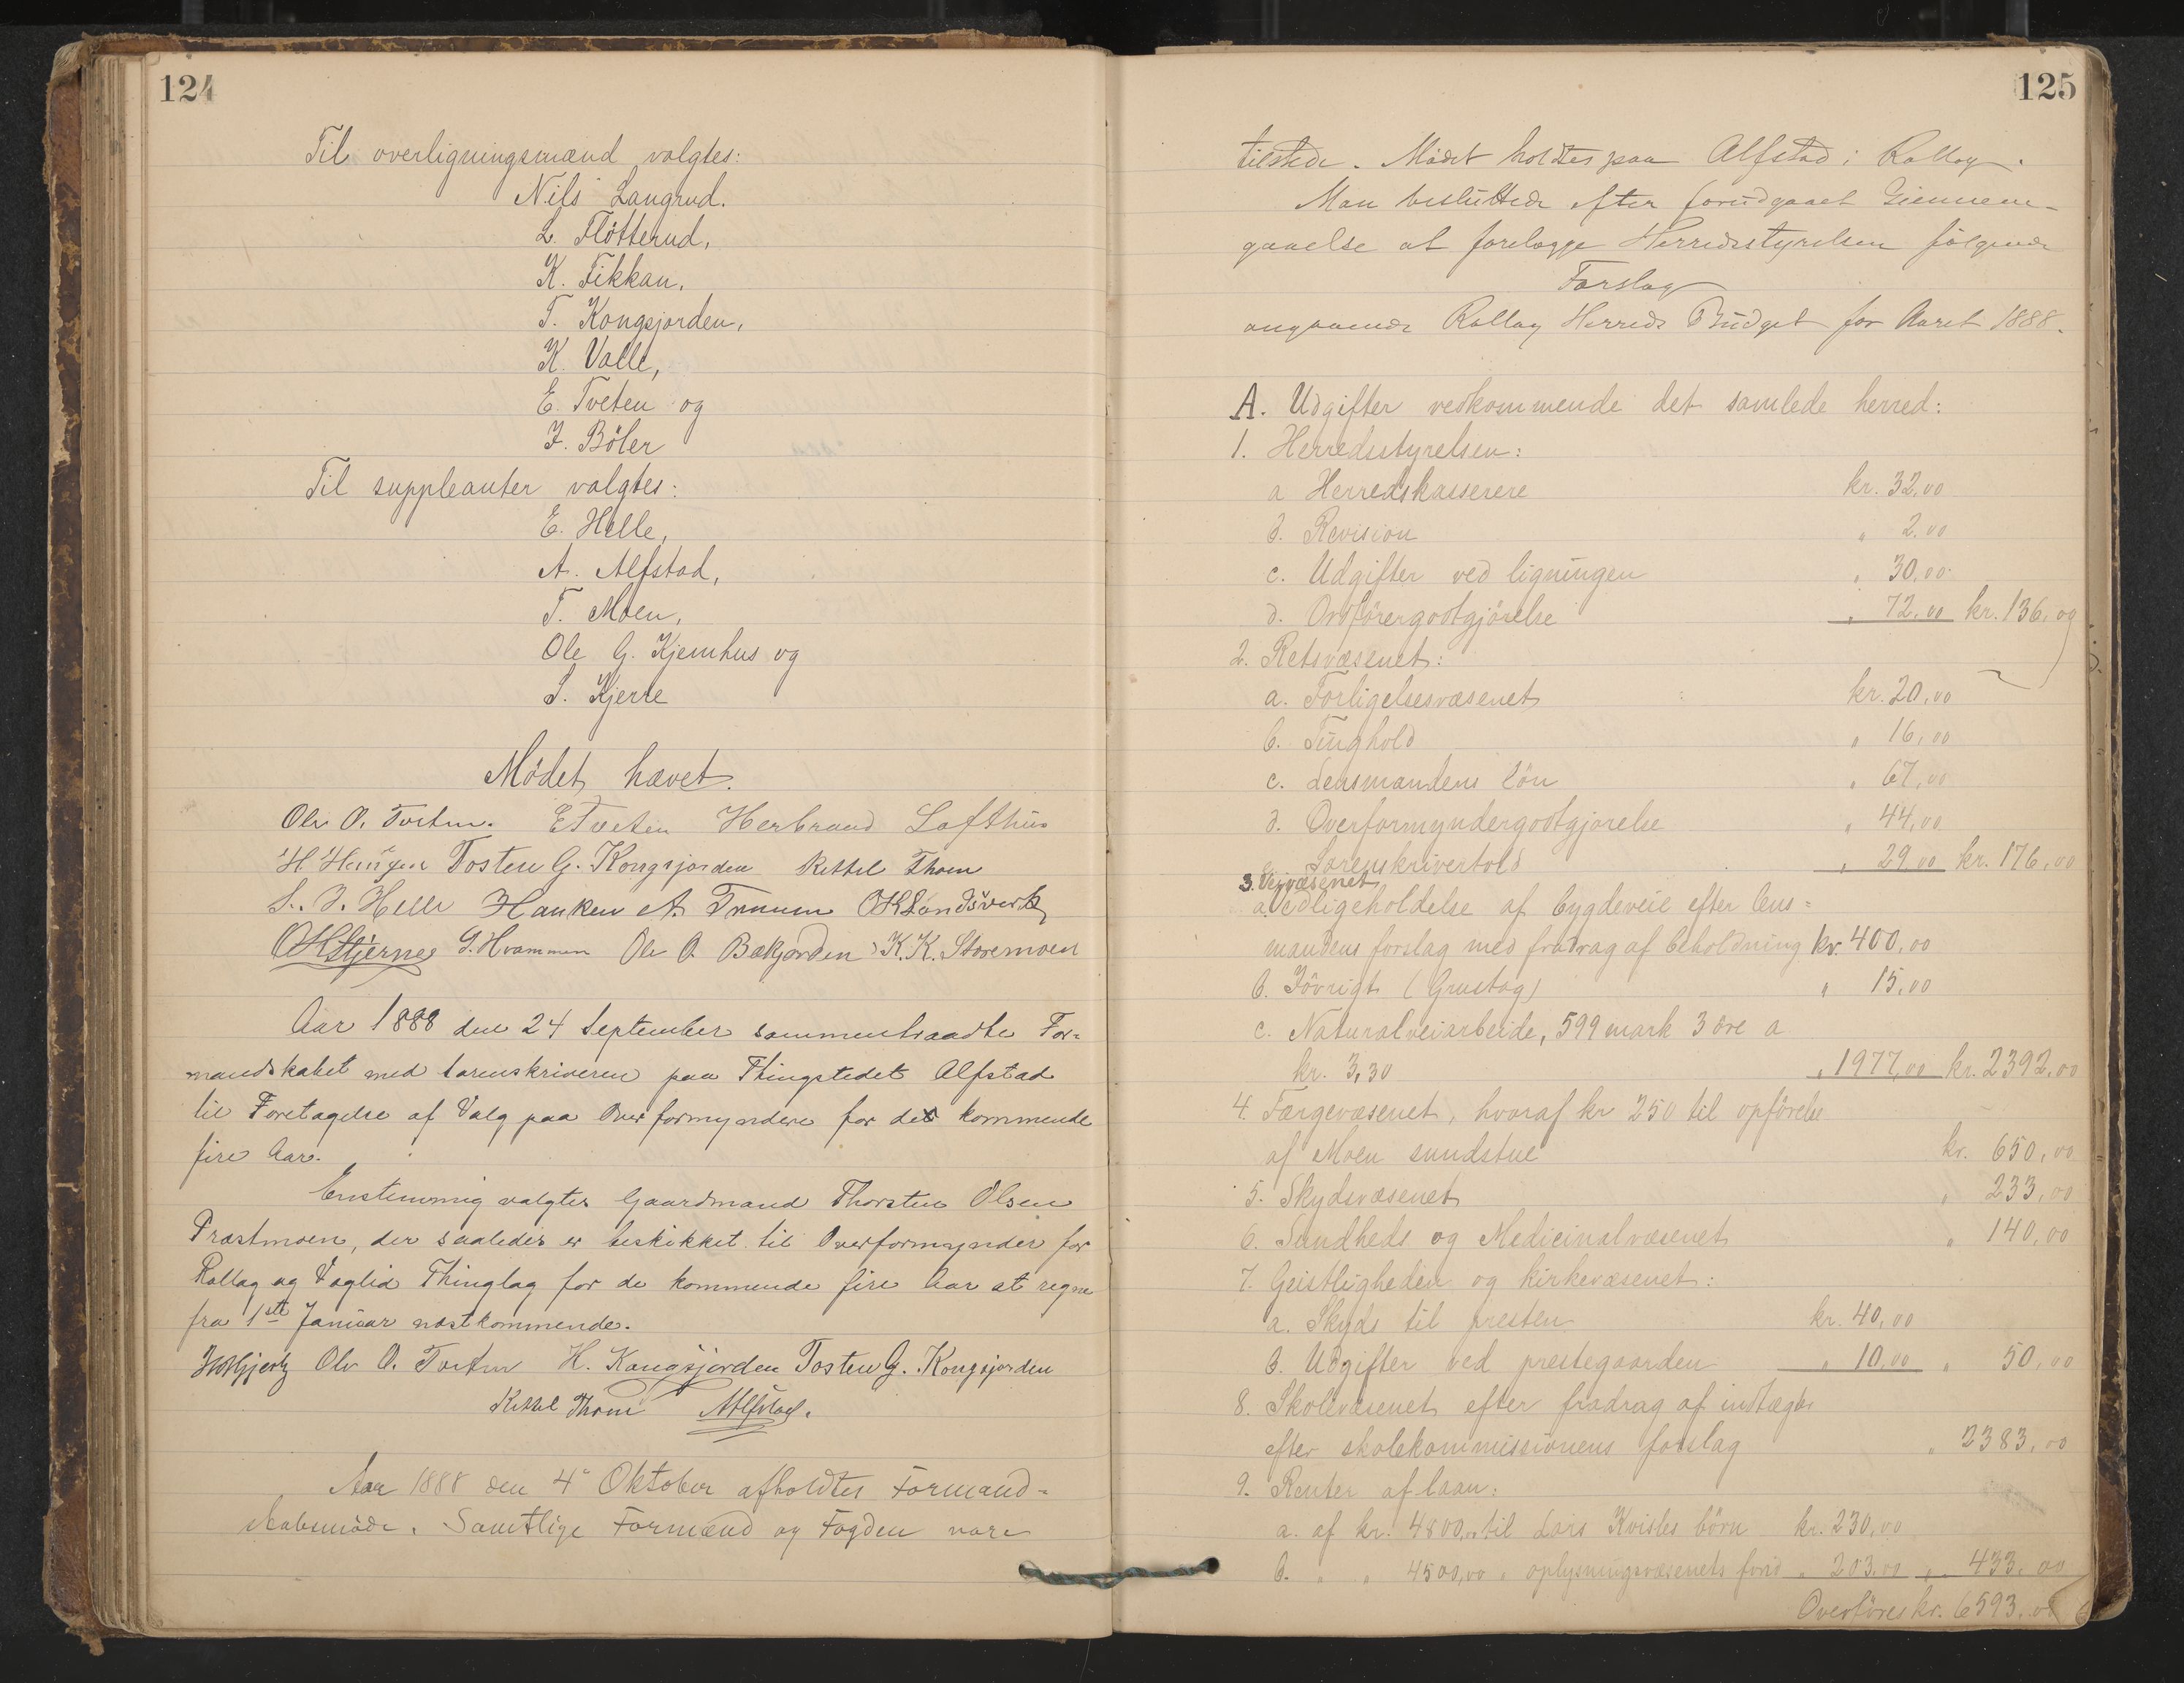 124
Til overligningsmænd valgtes:
Nils Langrud.
L. Fløtterud,
K. Fikkan,
T. Kongsjorden,
K. Valle,
E. Tveten og
J. Böler
Til suppleanter valgtes:
E. Helle,
A. Alfstad,
T. Moen,
Ole G. Kjemhus og
S. Kjerre
Mödet hævet.
Ole O. Torten. E Tveten Herbrand Lofthus
H Tosten G. Kongsjorden Kittel Thoen
S. J. Helle Hanken A. OKLandsverk
G. Hvammen Ole O. Bækjorden K. K. Storemoen
Aar 1888 den 24 September sammentraadte For-
mandskabet med Sorenskriveren paa Thingstedet Alfstad
til Foretagelse af Valg paa Overformyndere for de kommende
fire Aar.
Enstemmig valgtes Gaardmand Thorsten Olsen
Præstmoen, der saaledes er beskikket til Overformynder for
Rollag og Væglid Thinglag for de kommende fire Aar at regne
fra 1ste Januar næstkommende.
Ole O. Torten H. Kongsjorden Tosten G. Kongsjorden
Kittel Thoen AAlfstad.
Aar 1888 den 4de Oktober afholdtes Formand-
skabsmöde. Samtlige Formænd og Fogden vare
125
tilstede. Mödet holdtes paa Alfstad i Rollag.
Man besluttede efter forudgaaet Giennem-
gaaelse at forelægge Herredsstyrelsen følgende
Forslag
angaaende Rollag Herreds Budget for Aaret 1888.
A. Udgifter vedkommende det samlede herred:
1. Herredsstyrelsen:
a Herredskasserere kr. 32,00
b. Revision " 2,00
c. Udgifter ved ligningen " 30,00
d. Ordförergodtgjörelse " 72,00 kr. 136,00
2. Retsvæsenet:
a. Forligelsesvæsenet kr. 20,00
b. Tinghold " 16,00
c. Lensmandens Lön " 67,00
d. Overformyndergodtgjörelse " 44,00
e. Sorenskrivertold " 29,00 kr. 176,00
3. Veivæsenet
a. Vedligeholdelse af bygdeveie efter lens=
mandens forslag med fradrag af beholdning kr. 400,00
b. Iövrigt (Grustag) " 15,00
c. Naturalveiarbeide, 599 mark 3 öre a
kr. 3,30 " 1977,00 kr. 2392,00
4. Færgevæsenet, hvoraf kr 250 til opförelse
af Moen sundstue kr. 650,00
5. Skydsvæsenet " 233,00
6. Sundheds og Medicinalvæsenet " 140,00
7. Geistligheden og kirkevæsenet:
a. Skyds til presten kr. 40,00
b. Udgifter ved prestegaarden " 10,00 " 50,00
8. Skolevæsenet efter fradrag af indtægter
efter skolekommissionens forslag " 2383,00
9. Renter af laan:
a. af kr. 4800,00 til Lars Kvisles börn kr. 230,00
b. " " 4500,00 " oplysningsvæsenets fond " 203,00 " 433,00
Overföres kr. 6593,00